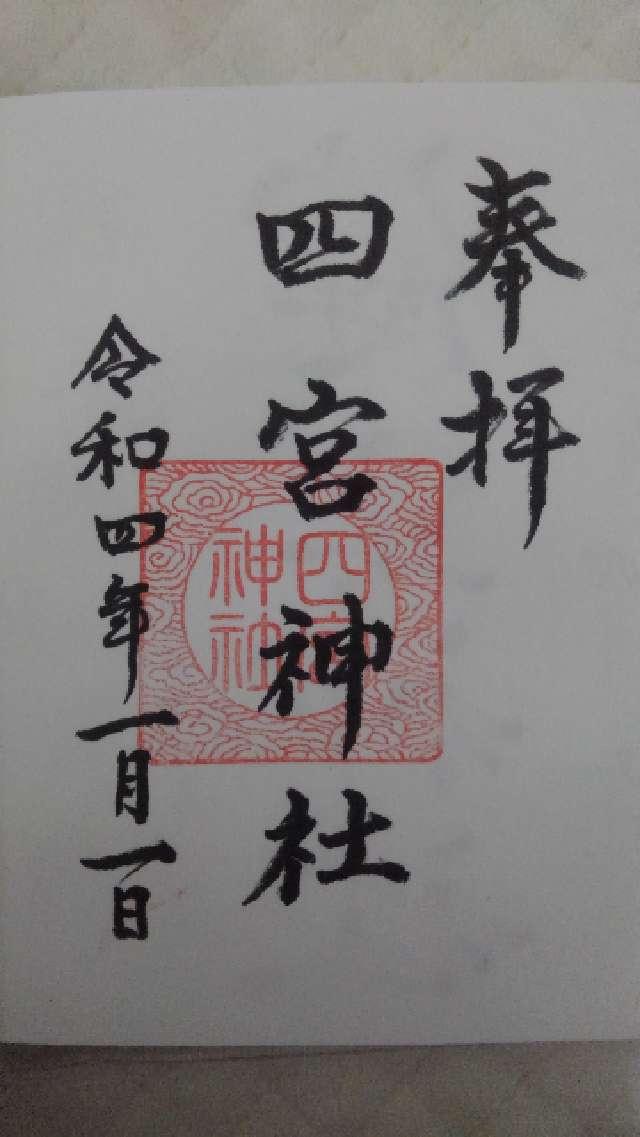 奉拝
四宮神社
四宮
神社
令和四年一月一日